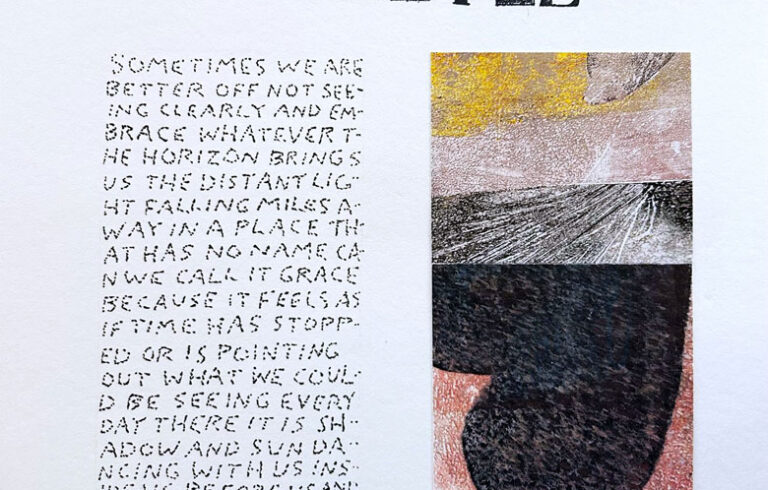 SOMETIMES WE ARE
BETTER OFF NOT SEE-
ING CLEARLY AND EM-
BRACE WHATEVER T-
HE HORIZON BRINGS
US THE DISTANT LIG-
HT FALLING MILES A-
WAY IN A PLACE TH-
AT HAS NO NAME CA-
N WE CALL IT GRACE
BECAUSE IT FEELS AS
IF TIME HAS STOPP-
ED OR IS POINTING
OUT WHAT WE COUL-
D BE SEEING EVERY
DAY THERE IT IS SH-
ADOW AND SUN DA-
NCING WITH US INS-
BEFORE US AND